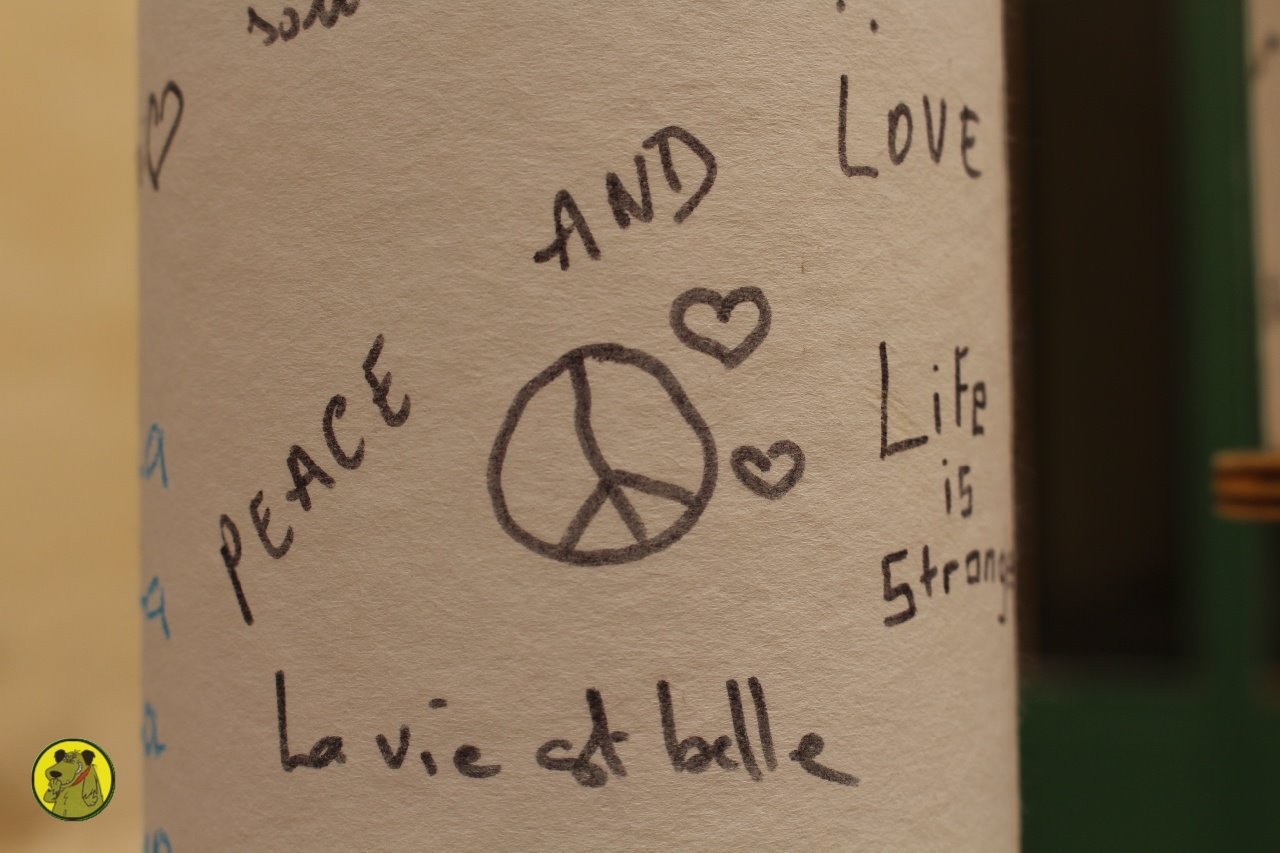 PEACE
AND
LOVE
Life
is
Strange
La vie est belle